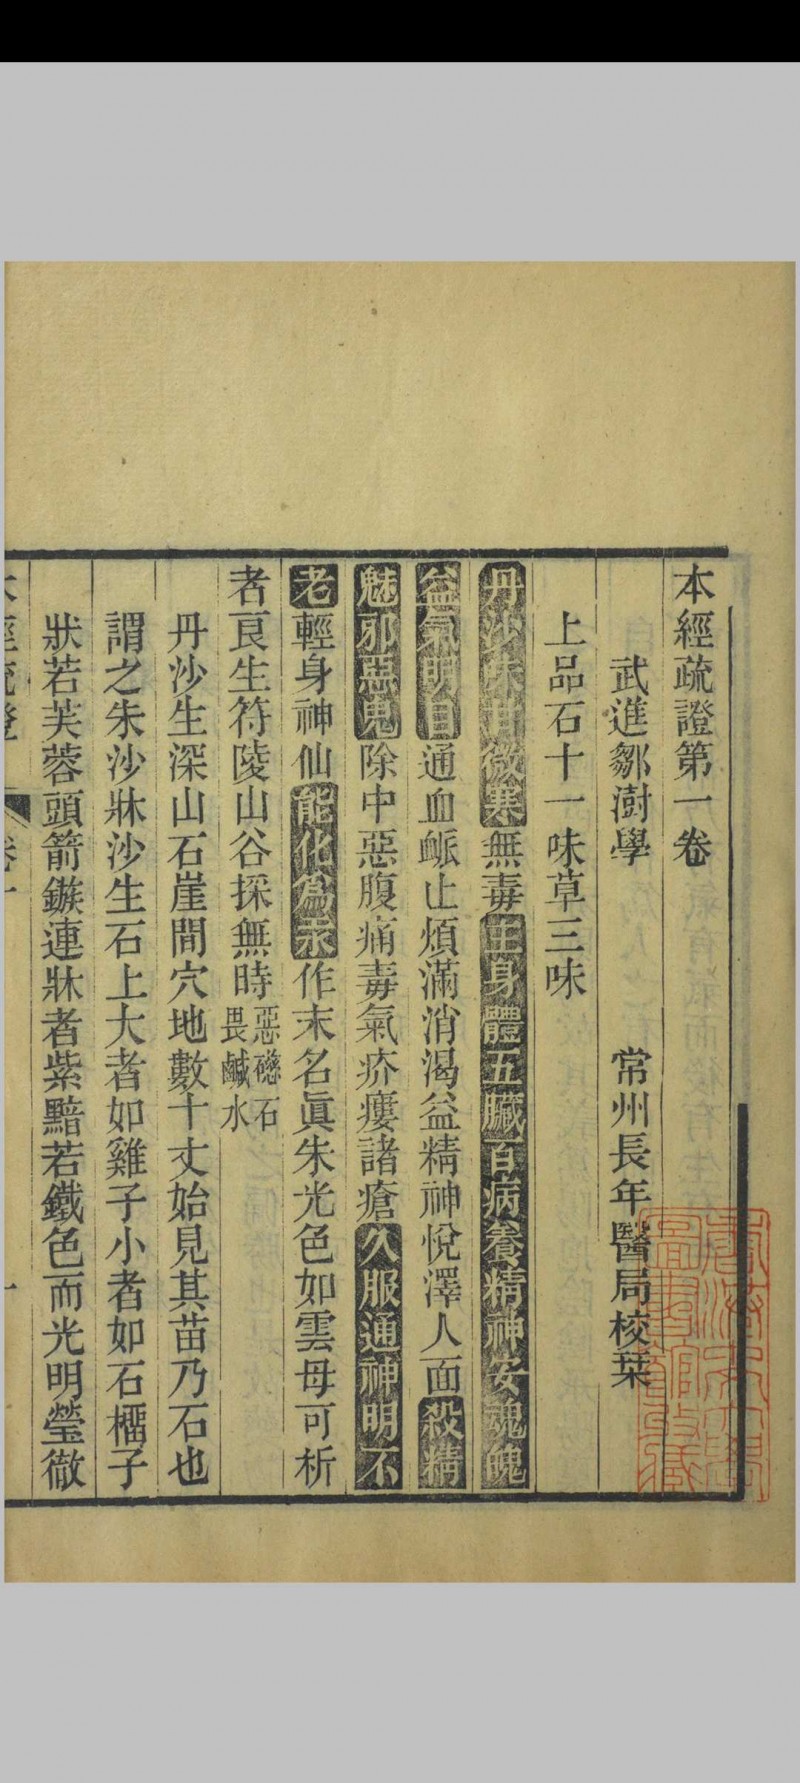 本經疏證第一卷
武進鄒澍學　常州長年醫局校栞
上品石十一味草三味
丹沙味甘微寒無毒主身體五臟百病養精神安魂魄
益氣明目通血䘑止煩滿消渴益精神悅澤人面殺精
魅邪惡鬼除中惡腹痛毒氣疥瘻諸瘡久服通神明不
老輕身神仙能化爲汞作末名眞朱光色如雲母可析
者良生符陵山谷採無時惡磁石畏鹹水
丹沙生深山石崖間穴地數十丈始見其苗乃石也
謂之朱沙牀沙生石上大者如雞子小者如石橊子
狀若芙蓉頭箭鏃連牀者紫黯若鐵色而光明瑩徹
本經疏證　卷一　一